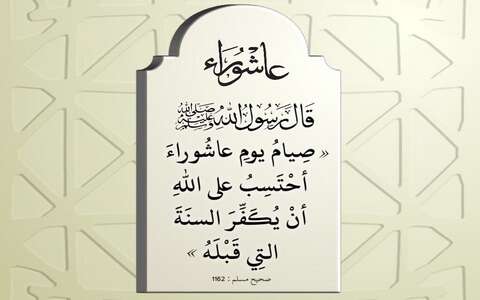 عاشُورَاء
قَالَ رَسُولُ اللهِ ﷺ
« صِيامُ يومِ عاشُوراءَ
أحْتَسِبُ على اللهِ
أنْ يُكَفِّرَ السنَةَ
التِي قَبْلَهُ »
صحيح مسلم : 1162